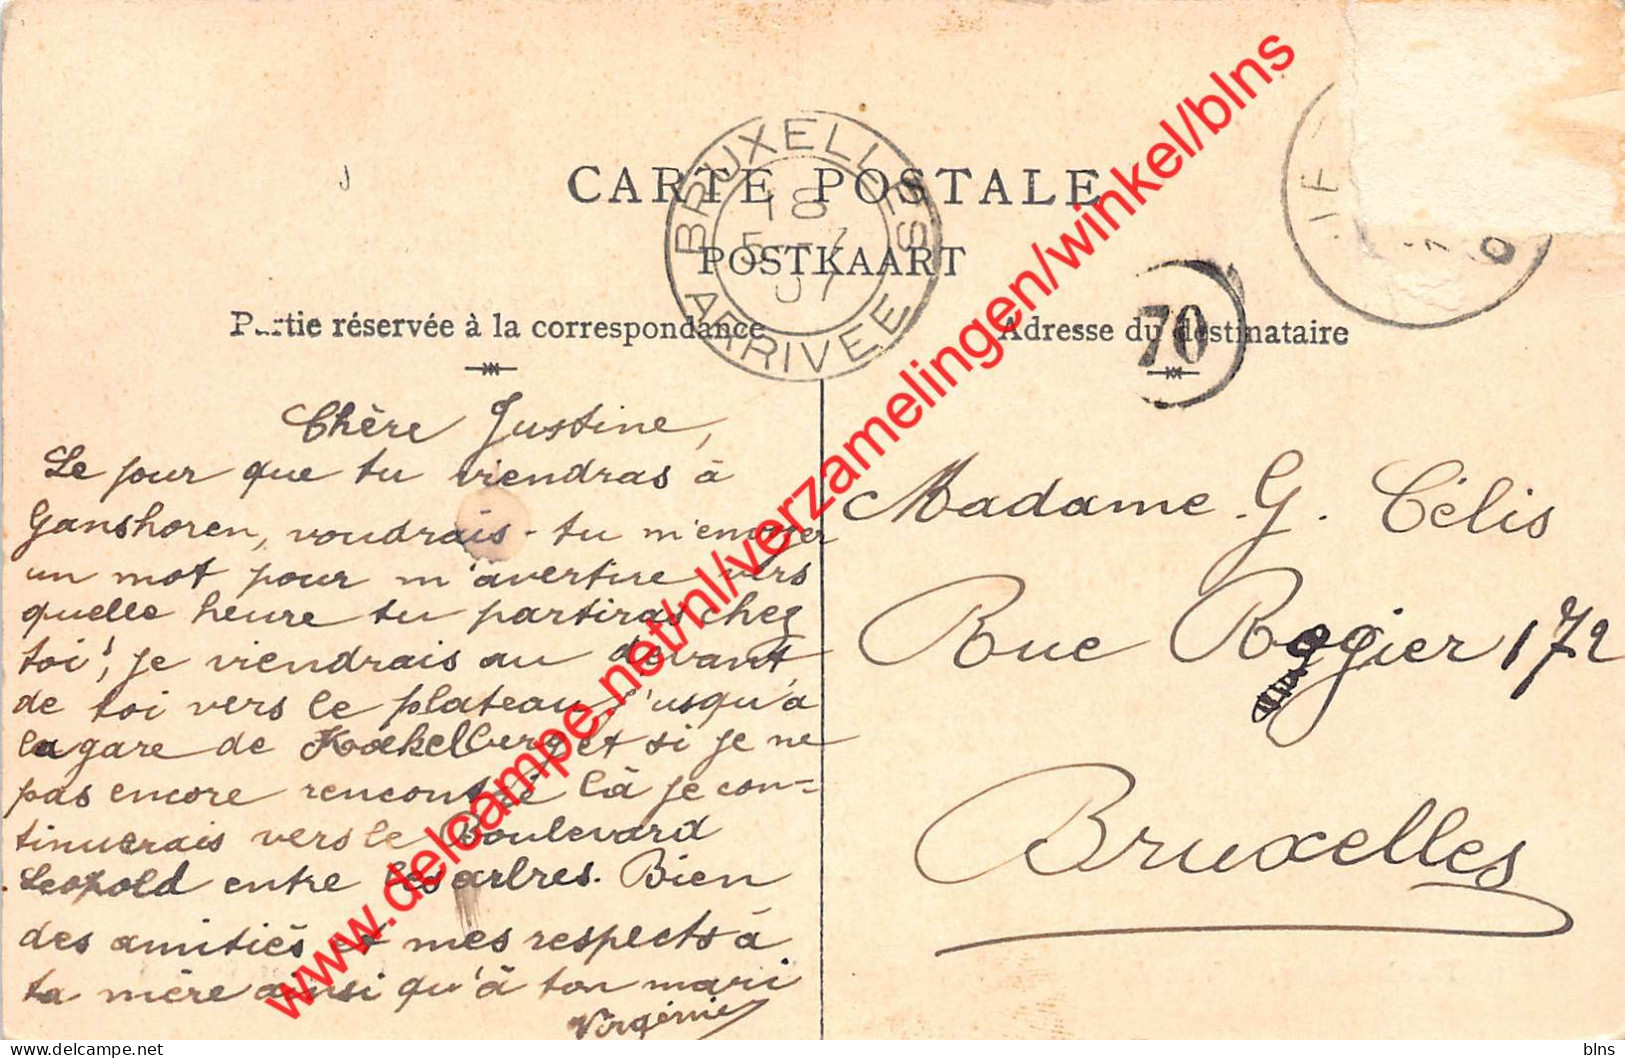 CARTE POSTALE
POSTKAART
Partie réservée à la correspondance
Adresse du destinataire
BRUXELLES
18
07
ARRIVEE
70
Chère Justine,
Le jour que tu viendras à
Ganshoren, voudrais-tu m'envoyer
un mot pour m'avertire vers
quelle heure tu partiras chez
toi', je viendrais au devant
de toi vers le plateau j'usqu'à
la gare de Koekelberg et si je ne
pas encore rencontré là je con=
tinuerais vers le Boulevard
Leopold entre les arbres. Bien
des amitiés et mes respects à
ta mère ainsi qu'à ton mari
Virginie
Madame G. Célis
Rue Rogier 172
Bruxelles
www.delcampe.net/nl/verzamelingen/winkel/blns
blns